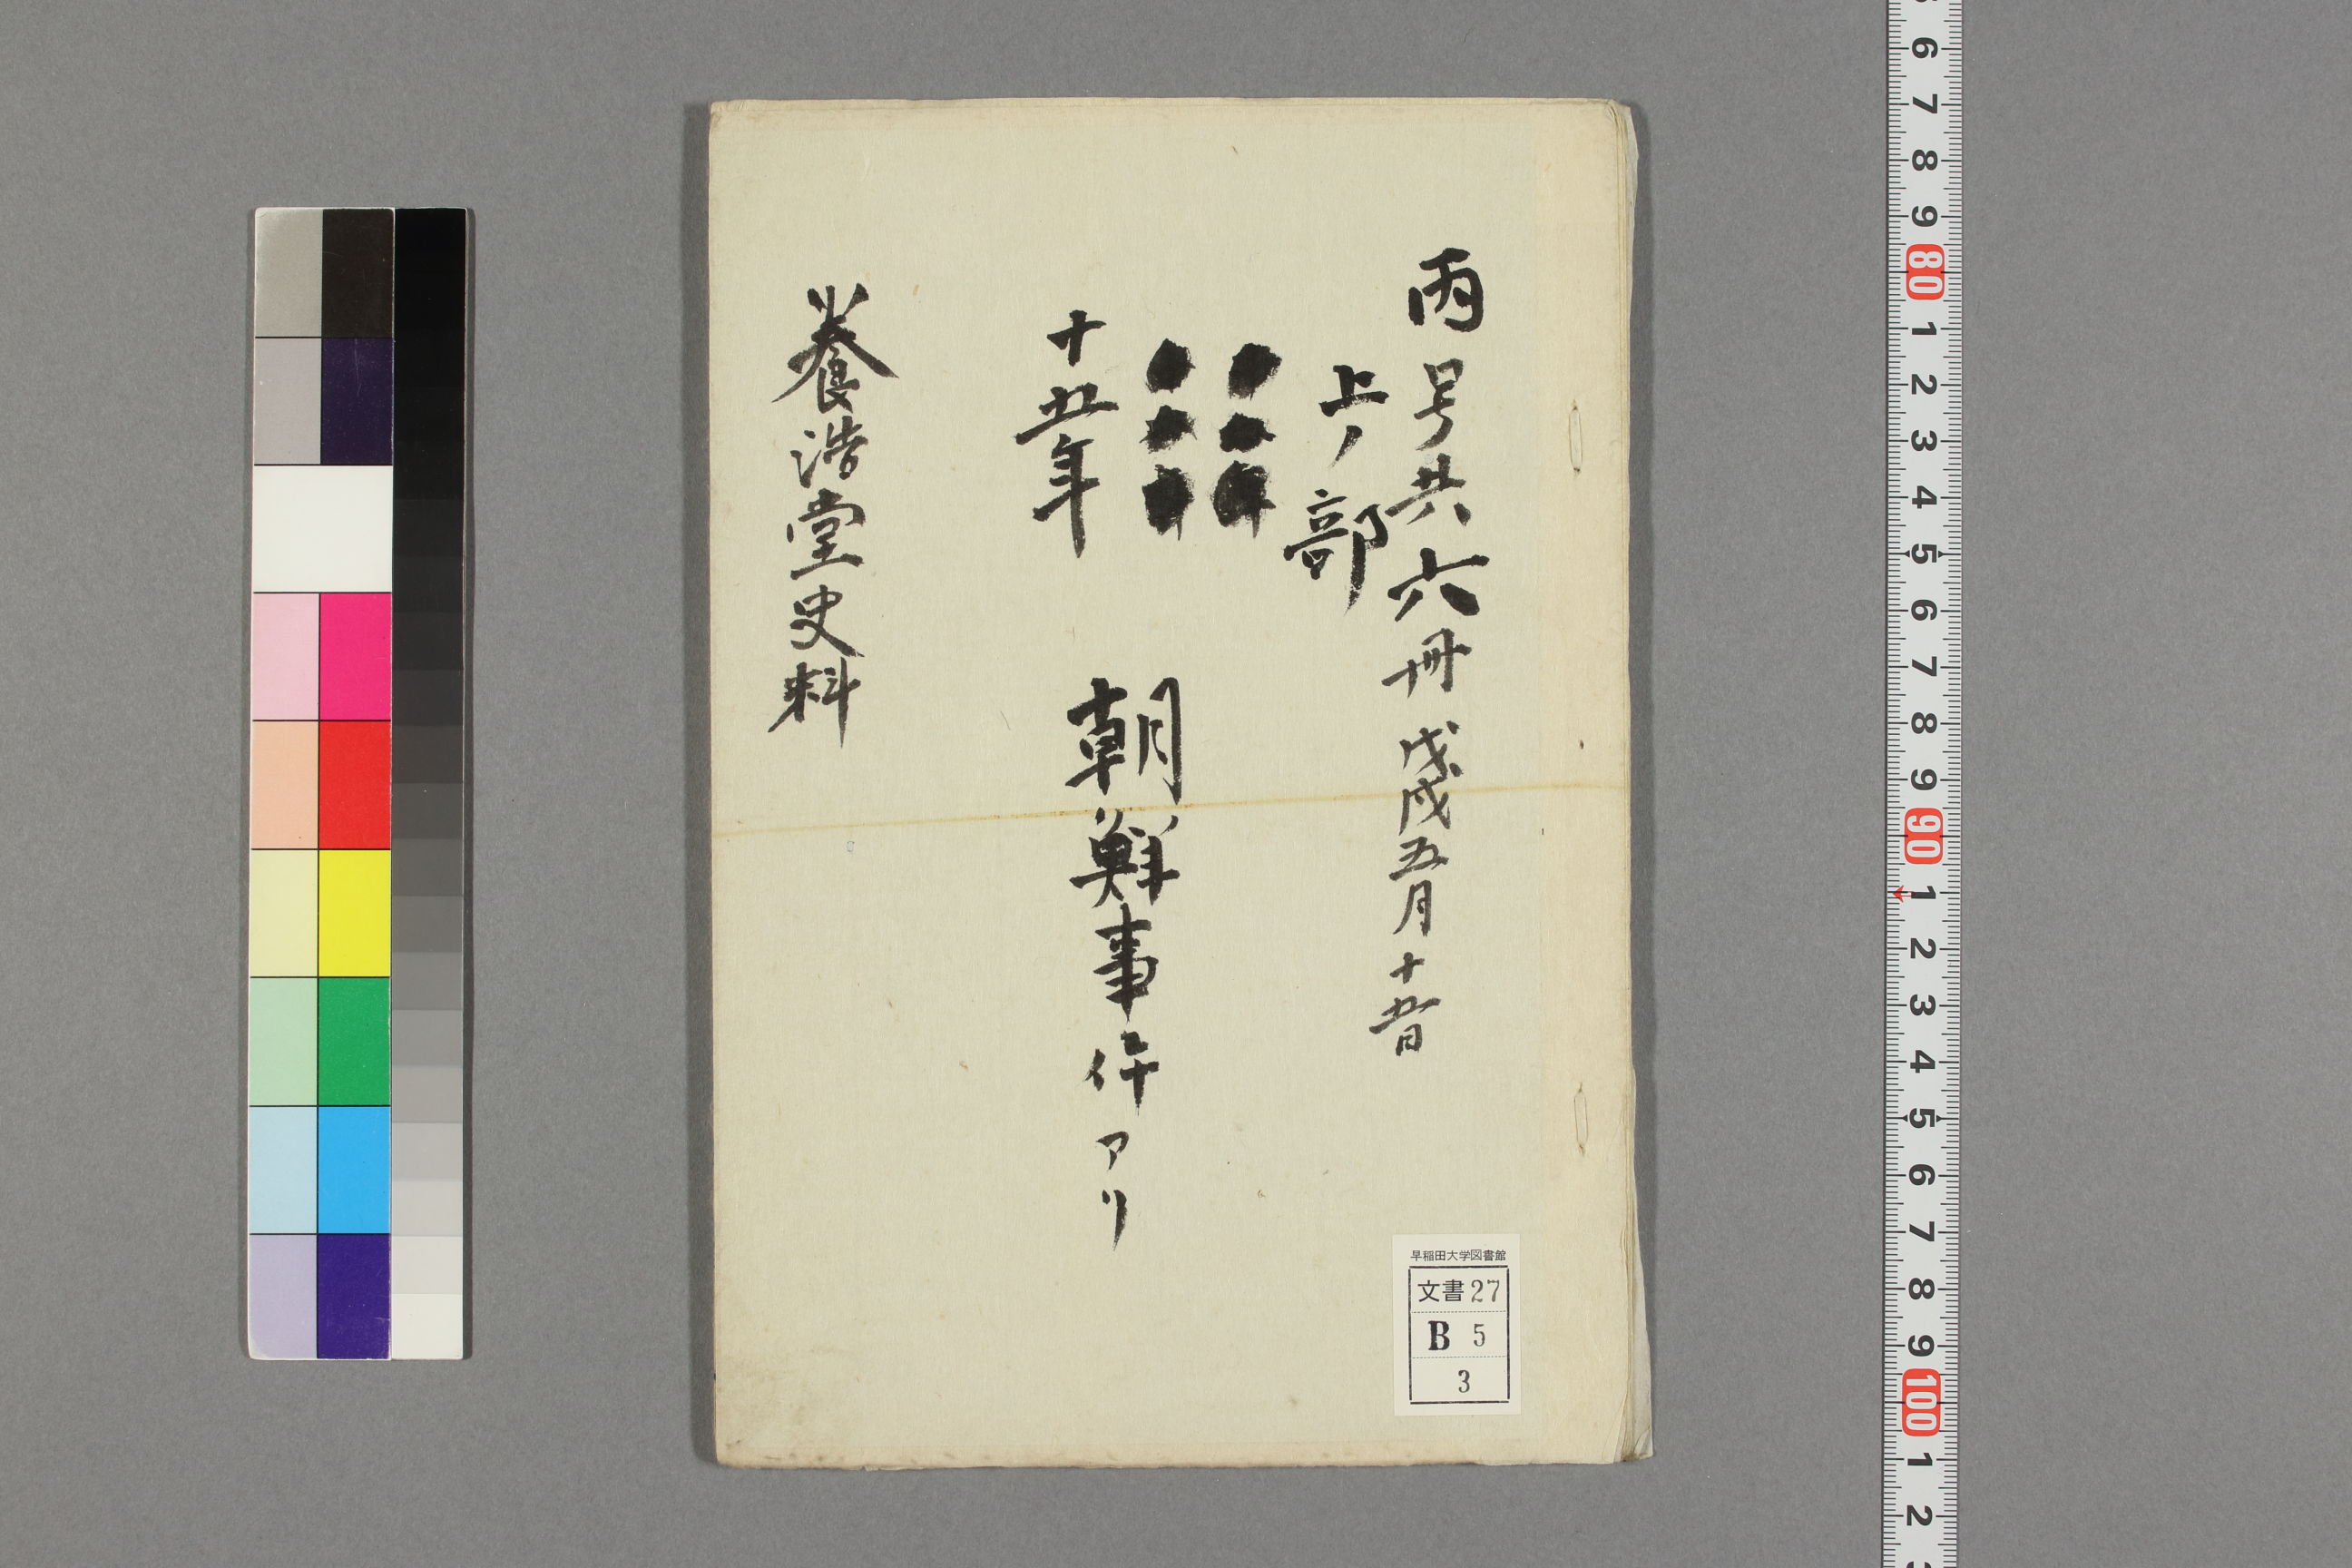 丙号共六冊 戊戌五月十五日
上ノ部
十五年
朝鮮事件アリ
養浩堂史料
早稲田大学図書館
文書 27
B 5
3
6 7 8 9 80 1 2 3 4 5 6 7 8 9 90 1 2 3 4 5 6 7 8 9 100 1 2